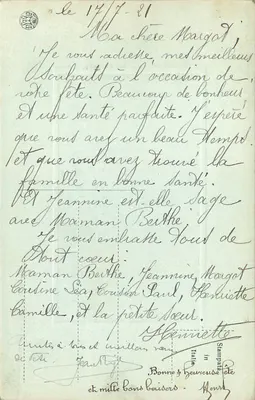 le 17/7-21
Ma chère Margot,
Je vous adresse mes meilleurs
souhaits à l'occasion de
votre fête. Beaucoup de bonheur
et une santé parfaite. J'espère
que vous avez un beau temps
et que vous avez trouvé la
famille en bonne santé.
Et Jeannine est-elle sage
avec Maman Berthe
Je vous embrasse tous de
tout cœur:
Maman Berthe, Jeannine, Margot
Cousine Léa, Cousin Paul, Henriette
Camille, et la petite sœur.
Henriette
Stampata in Italia
Bonne & heureuse fête
et mille bons baisers